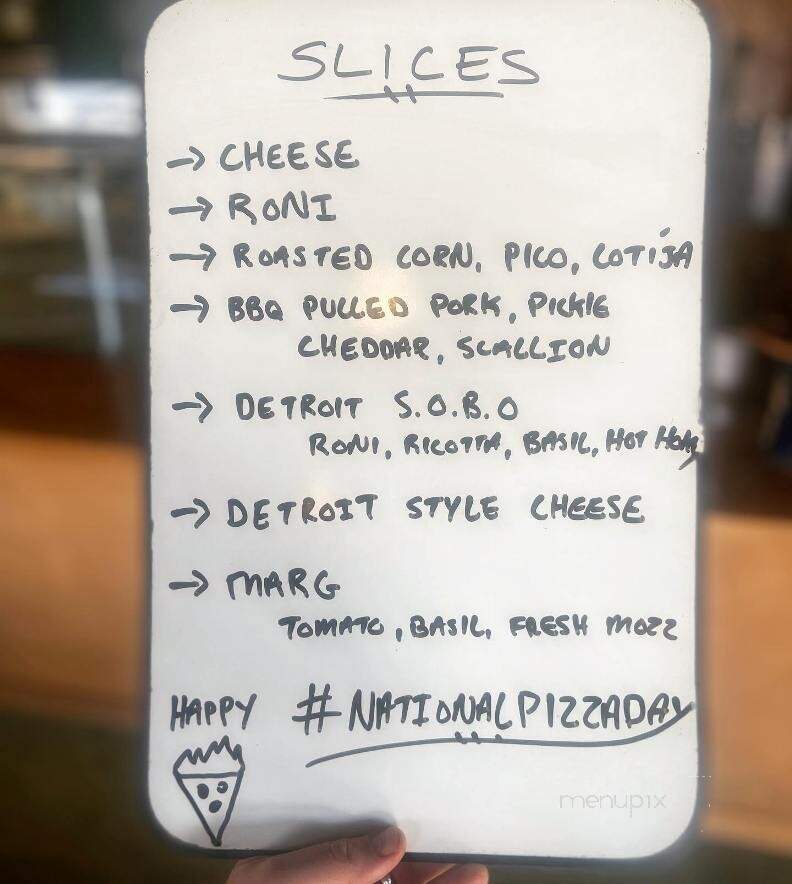 SLICES
→ CHEESE
→ RONI
→ ROASTED CORN, PICO, COTIJA
→ BBQ PULLED PORK, PICKLE
CHEDDAR, SCALLION
→ DETROIT S.O.B.O
RONI, RICOTTA, BASIL, HOT
→ DETROIT STYLE CHEESE
→ MARG
TOMATO, BASIL, FRESH MOZZ
HAPPY #NATIONALPIZZADAY
menupix